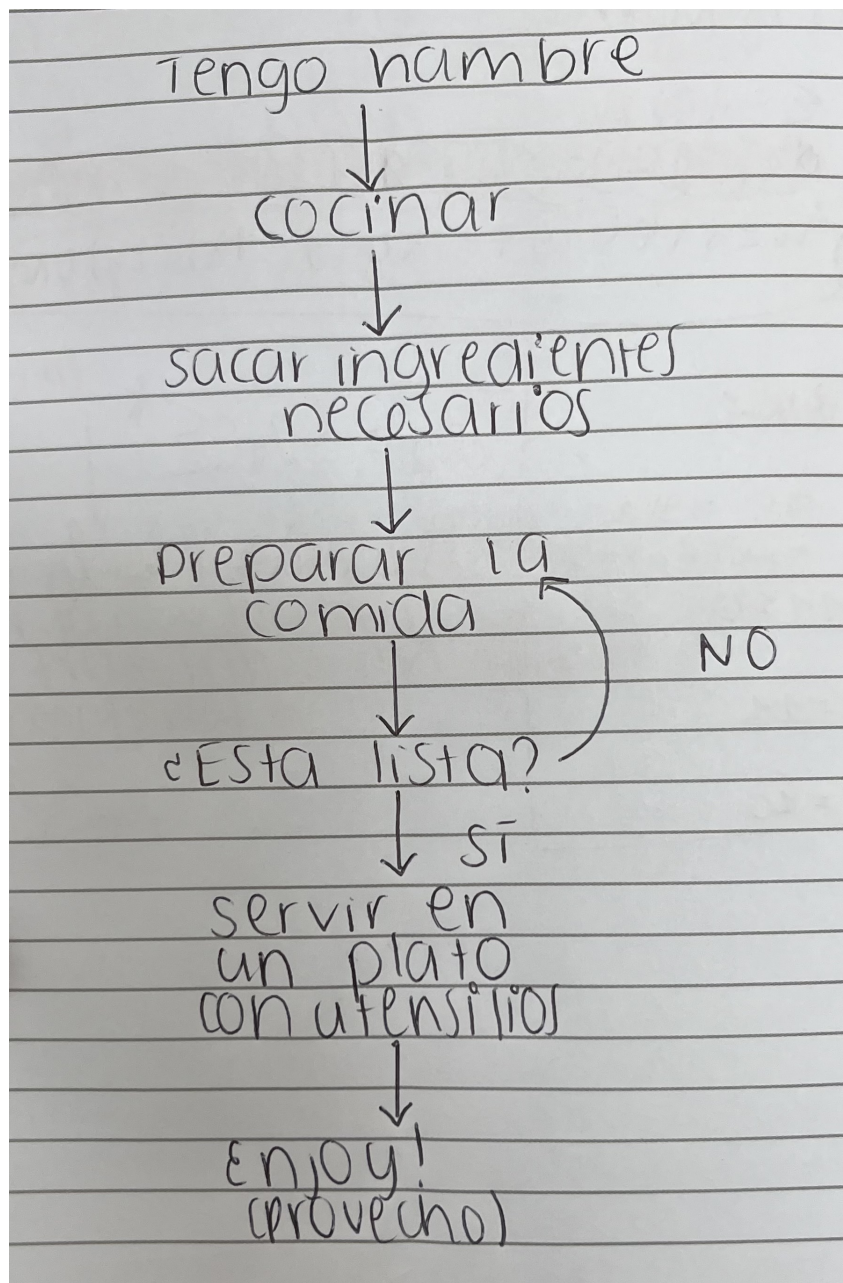 Tengo hambre
cocinar
sacar ingredientes
necesarios
preparar la
comida
NO
¿Esta lista?
SI
servir en
un plato
con utensilios
Enjoy!
(provecho)